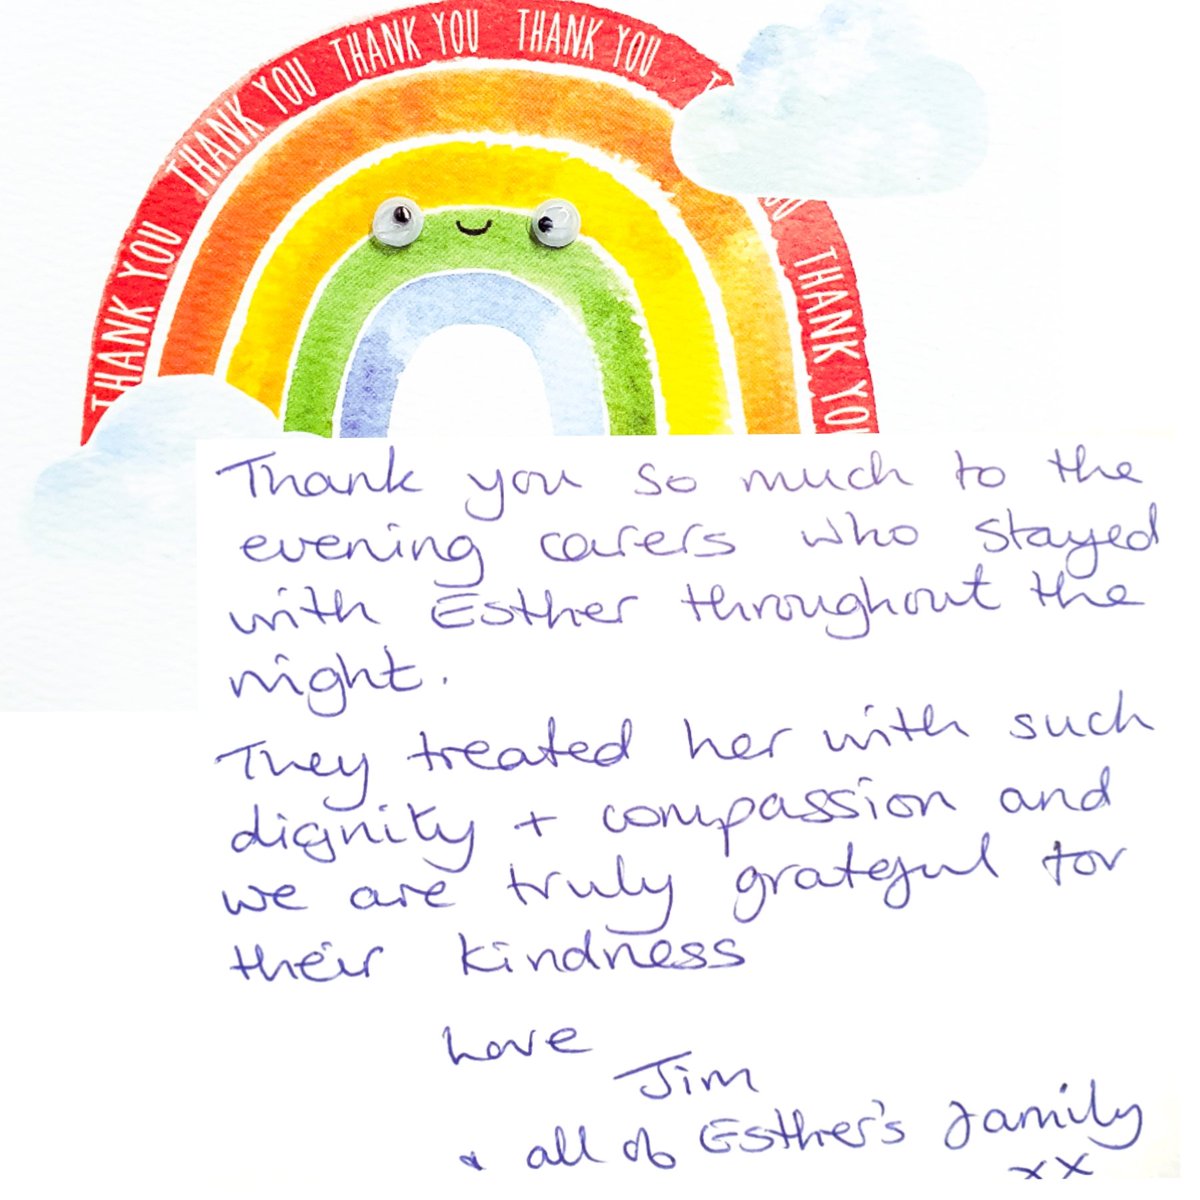 THANK YOU THANK YOU THANK YOU THANK YOU T
OU THANK YOU
Thank you so much to the
evening carers who stayed
with Esther throughout the
night.
They treated her with such
dignity + compassion and
we are truly grateful for
their kindness
Love
Jim
& all of Esther's family
xx